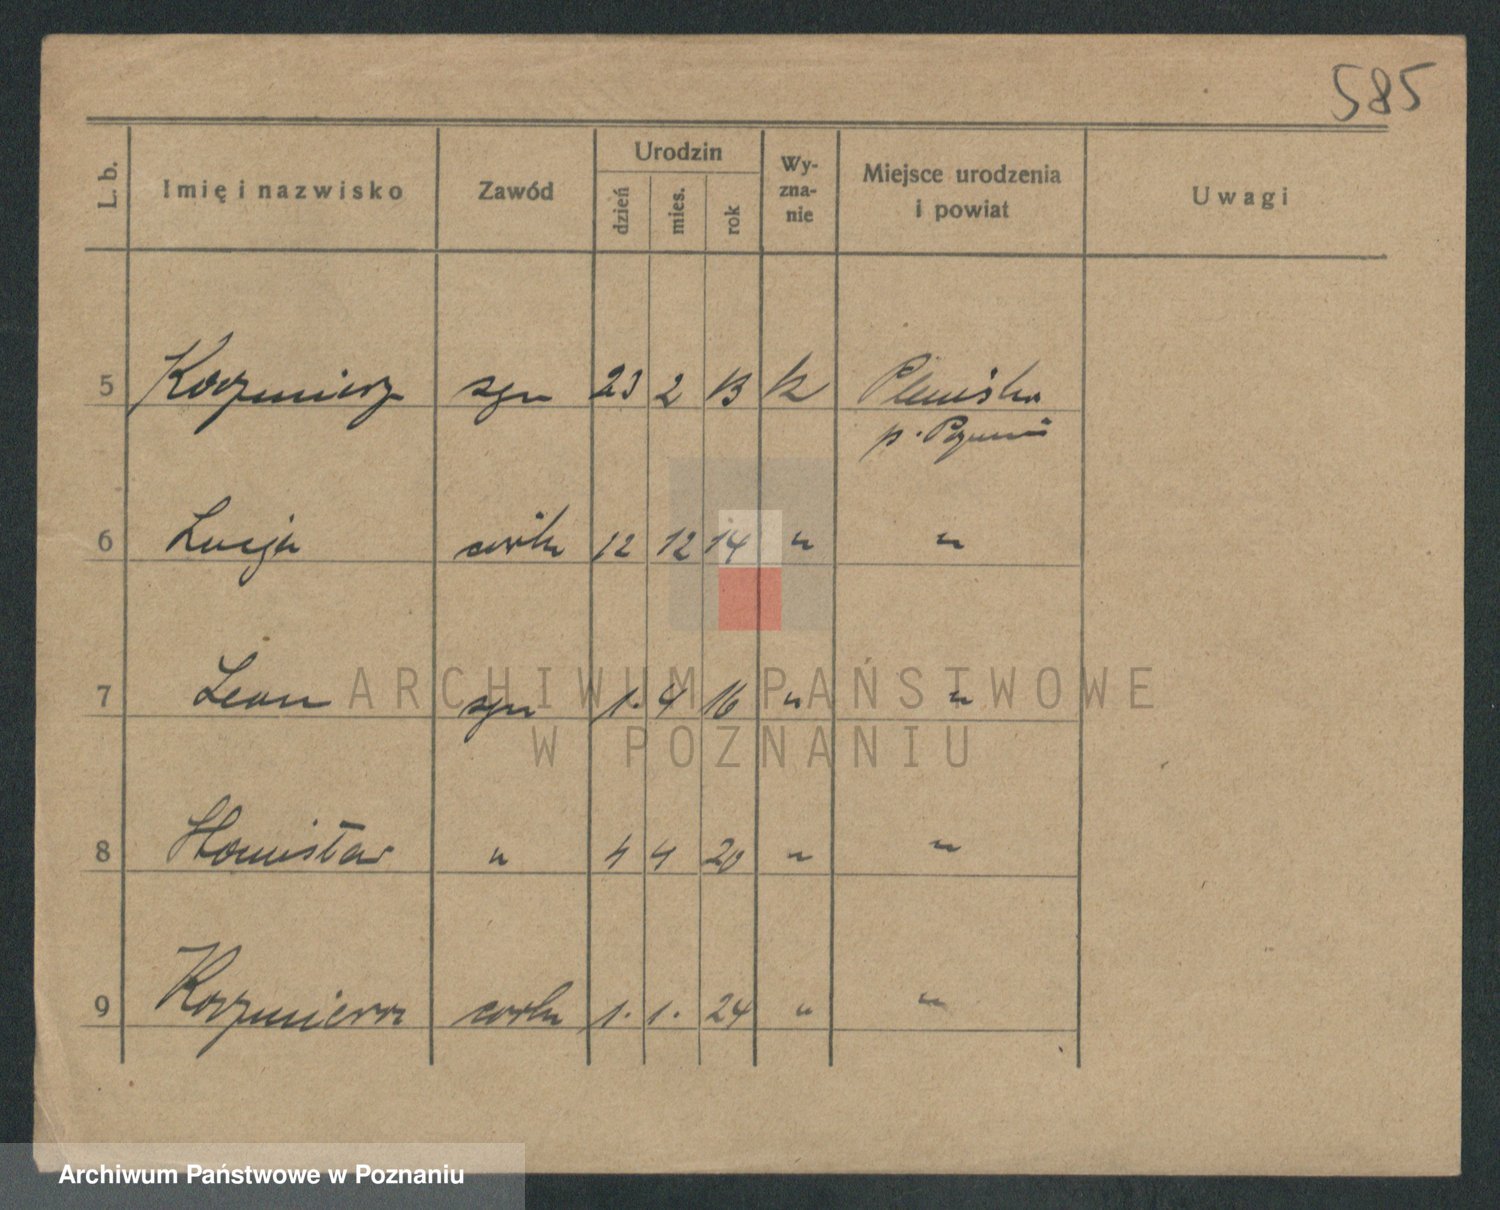 585
L. b. Imię i nazwisko Zawód Urodzin dzień mies. rok Wy-zna-nie Miejsce urodzenia i powiat Uwagi
5 Kazimierz syn 23 2 13 k Plewiska
p. Poznań
6 Lucja córka 12 12 14 " "
7 Leon syn 1. 4 16 " "
ARCHIWUM PAŃSTWOWE
W POZNANIU
8 Stanisław " 4 4 20 " "
9 Kazimiera córka 1. 1. 24 " "
Archiwum Państwowe w Poznaniu